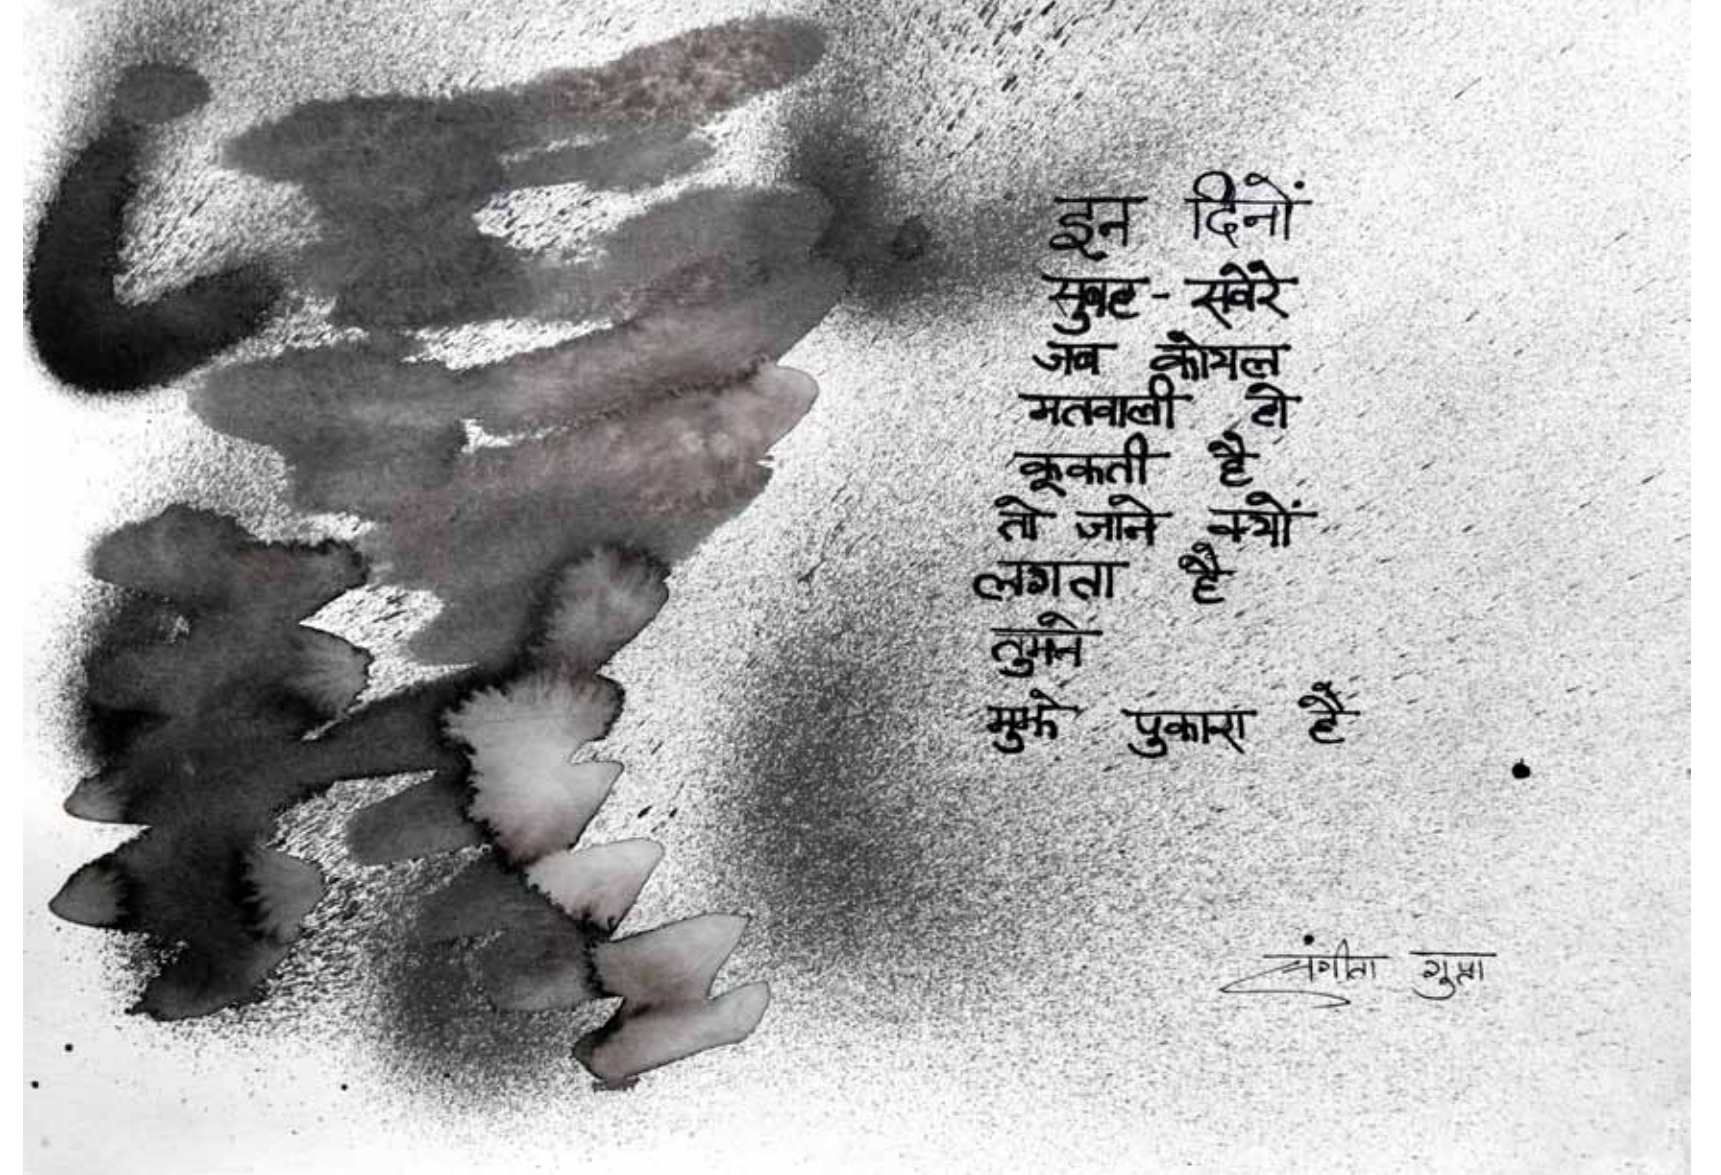 इन दिनों
सुबह - सवेरे
जब कोयल
मतवाली हो
कूकती है
तो जाने क्यों
लगता है
तुमने
मुझे पुकारा है
संगीता गुप्ता